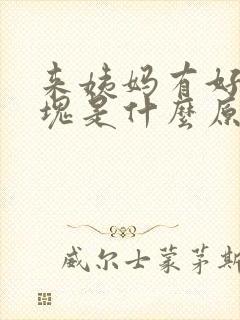 来姨妈有好
块是什麼原
威尔士蒙茅斯